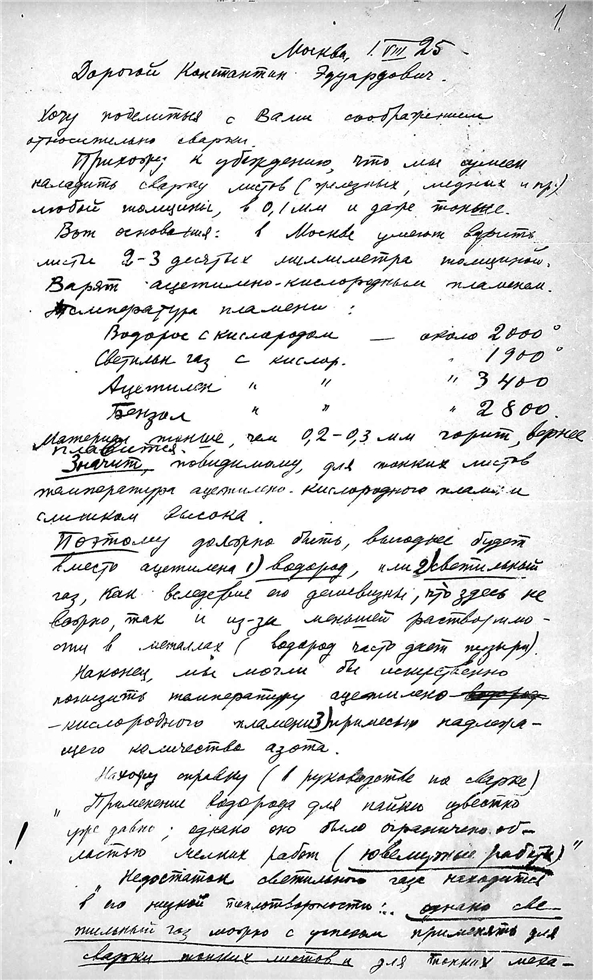 1.
Москва, 1.VIII 25
Дорогой Константин Эдуардович.
Хочу поделиться с Вами соображением
относительно сварки.
Прихожу к убеждению, что мы сумеем
наладить сварку листов (железных, медных и пр.)
любой толщины, в 0,1 мм и даже тоньше.
Вот основания: в Москве умеют варить
листы 2-3 десятых миллиметра толщиной.
Варят ацетилено-кислородным пламенем.
Температура пламени:
Водород с кислородом — около 2000°
Светильн газ с кислор. " 1900°
Ацетилен " " " 3400
Бензол " " " 2800.
Материал тоньше, чем 0,2-0,3 мм горит, вернее
плавится.
Значит, повидимому, для тонких листов
температура ацетилено-кислородного пламени
слишком высока.
Поэтому должно быть, выгоднее будет
вместо ацетилена 1) водород, или 2) светильный
газ, как вследствие его дешевизны, что здесь не
важно, так и из-за меньшей растворимо-
сти в металлах (водород часто дает пузыри).
Наконец, мы могли бы искусственно
понизить температуру ацетилено-
-кислородного пламени 3) примесью надлежа-
щего количества азота.
Нахожу справку (в руководстве по сварке)
"Применение водорода для пайки известно
уже давно; однако оно было ограничено об-
ластью мелких работ (ювелирные работы)"
! "Недостаток светильного газа находится
в его низкой теплотворности... однако све-
тильный газ можно с успехом применять для
сварки тонких листов и для тонких меха-